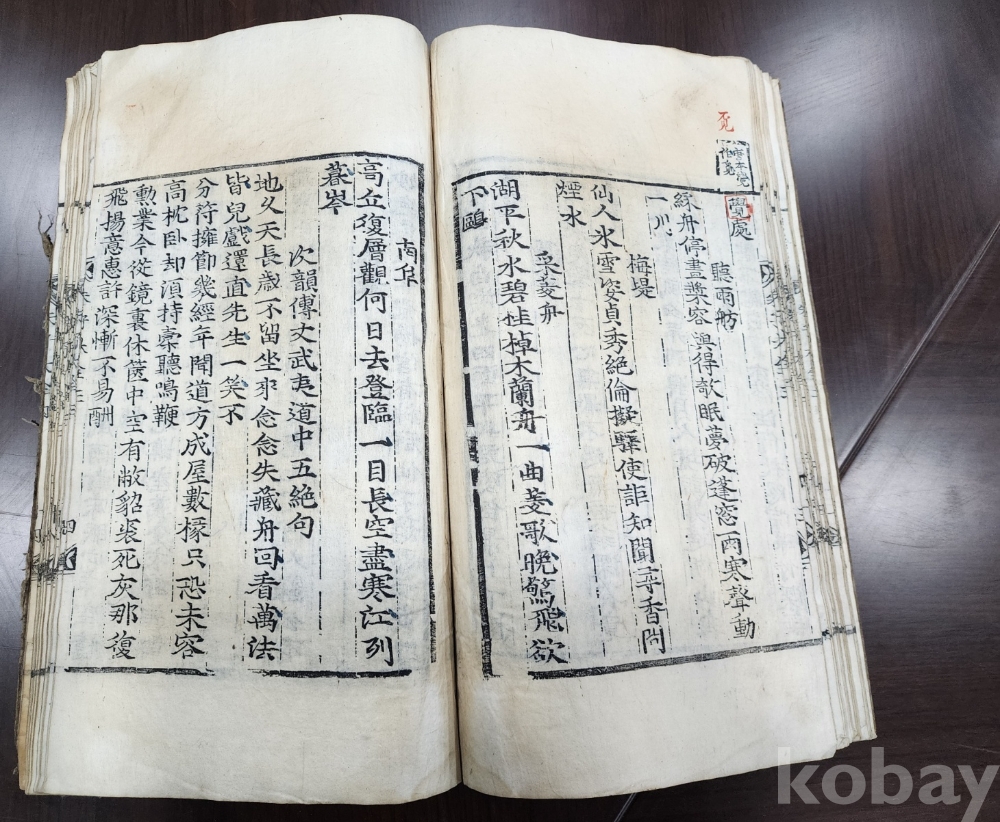 覓
唐本覺作覓
覺處
聽雨舫
綵舟停畫槳容與得欹眠夢破蓬窓雨寒聲動
一川
梅堤
仙人氷雪姿貞秀絶倫擬驛使詎知聞尋香問
煙水
采菱舟
湖平秋水碧桂棹木蘭舟一曲菱歌晚驚飛欲
下鷗
南阜
高丘復層觀何日去登臨一目長空盡寒江列
暮岑
次韻傅丈武夷道中五絶句
地久天長歲不留坐來念念失藏舟回看萬法
皆兒戲還直先生一笑不
分符擁節幾經年聞道方成屋數椽只恐未容
高枕卧却湏持橐聽鳴鞭
勳業今從鏡裏休篋中空有敝貂裘死灰那復
飛揚意惠許深慚不易酬
四
kobay